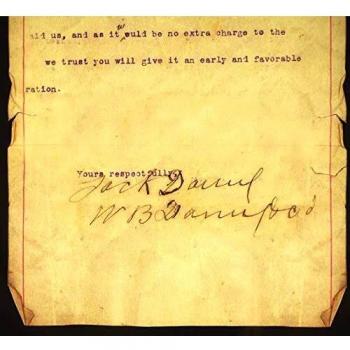 aid us, and as it would be no extra charge to the
we trust you will give it an early and favorable
ration.
Yours respectfully,
Jack Daniel
W B